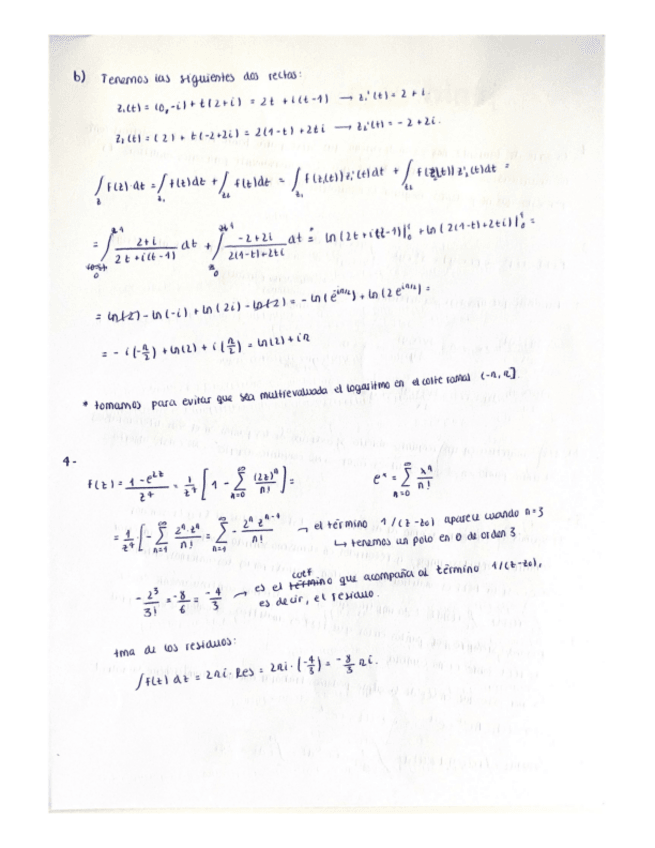 b) Tenemos las siguientes dos rectas:
z₁(t) = (0,-i) + t(2+i) = 2t + i(t-1) → z₁'(t) = 2 + i
z₂(t) = (2) + t(-2+2i) = 2(1-t) + 2ti → z₂'(t) = -2 + 2i.
∫ f(z) dz = ∫ f(z)dz + ∫ f(z)dz = ∫ f(z₁(t)) z₁'(t)dt + ∫ f(z₂(t)) z₂'(t)dt =
= ∫ (2+i)/(2t+i(t-1)) dt + ∫ (-2+2i)/(2(1-t)+2ti) dt =* ln(2t+i(t-1))|₀¹ + ln(2(1-t)+2ti)|₀¹ =
= ln(2) - ln(-i) + ln(2i) - ln(2) = - ln( ) + ln( ) =
= - i(-π/2) + ln(2) + i(π/2) = ln(2) + iπ
* tomamos para evitar que sea multievaluada el logaritmo en el corte ramal (-π, π].
4-
f(z) = (1-e^{2z})/z⁴ = 1/z⁴ [1 - ∑_{n=0}^∞ (2z)ⁿ/n!] = eˣ = ∑_{n=0}^∞ xⁿ/n!
= 1/z⁴ [- ∑_{n=1}^∞ 2ⁿ·zⁿ/n! = ∑_{n=1}^∞ - 2ⁿ zⁿ⁻⁴/n! → el término 1/(z-z₀) aparece cuando n=3
↳ tenemos un polo en 0 de orden 3.
- 2³/3! = -8/6 = -4/3 → es el coef que acompaña al término 1/(z-z₀),
es decir, el residuo.
tma de los residuos:
∫ f(z) dz = 2πi · Res = 2πi · (-4/3) = -8/3 πi.